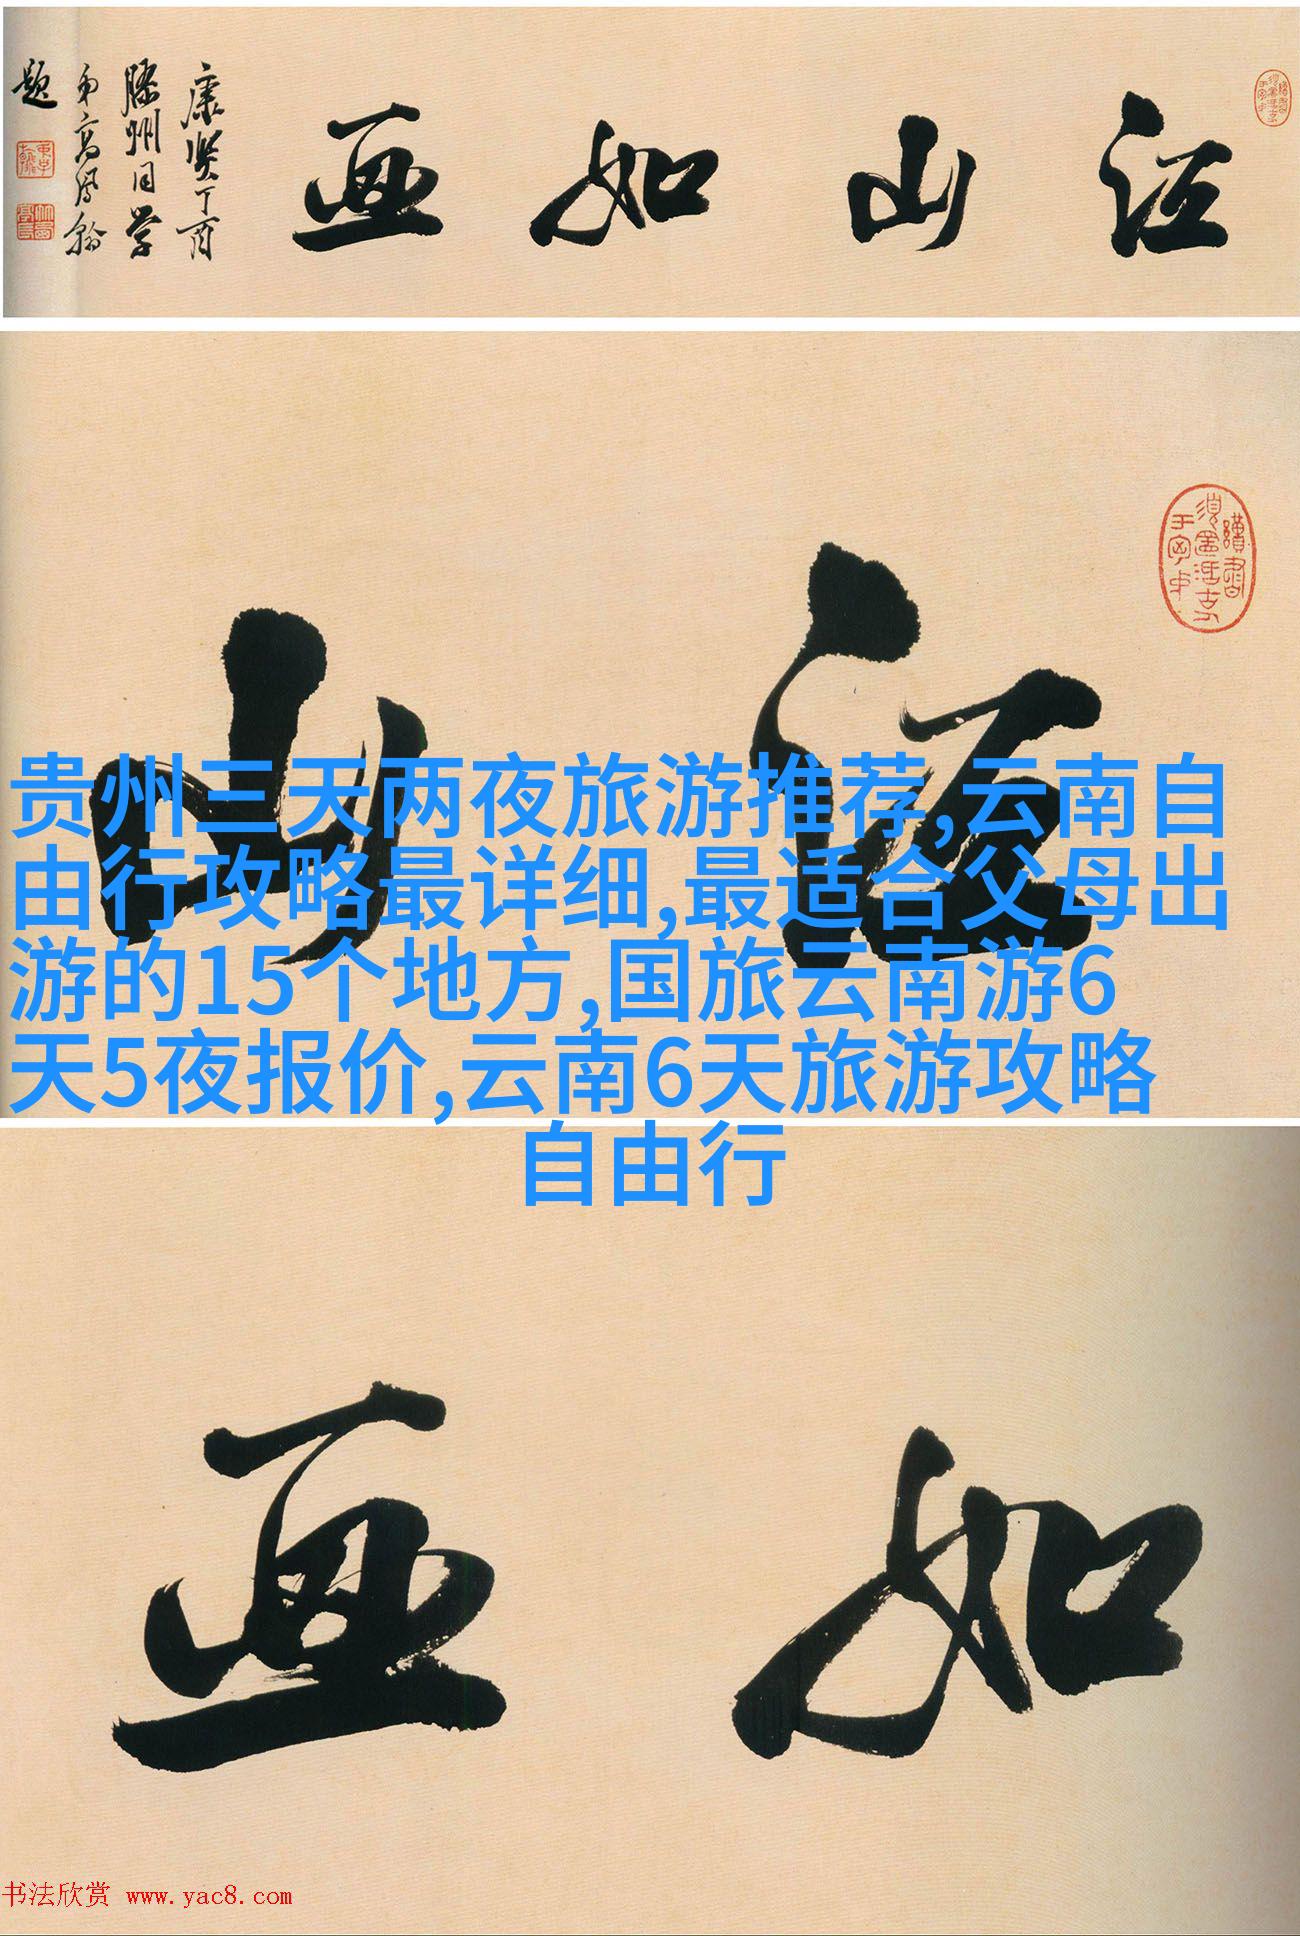 江山如画
康贤丁酉
滕州同学
弟高凤翰
题
江山
贵州三天两夜旅游推荐,云南自
由行攻略最详细,最适合父母出
游的15个地方,国旅云南游6
天5夜报价,云南6天旅游攻略
自由行
如画
书法欣赏 www.yac8.com